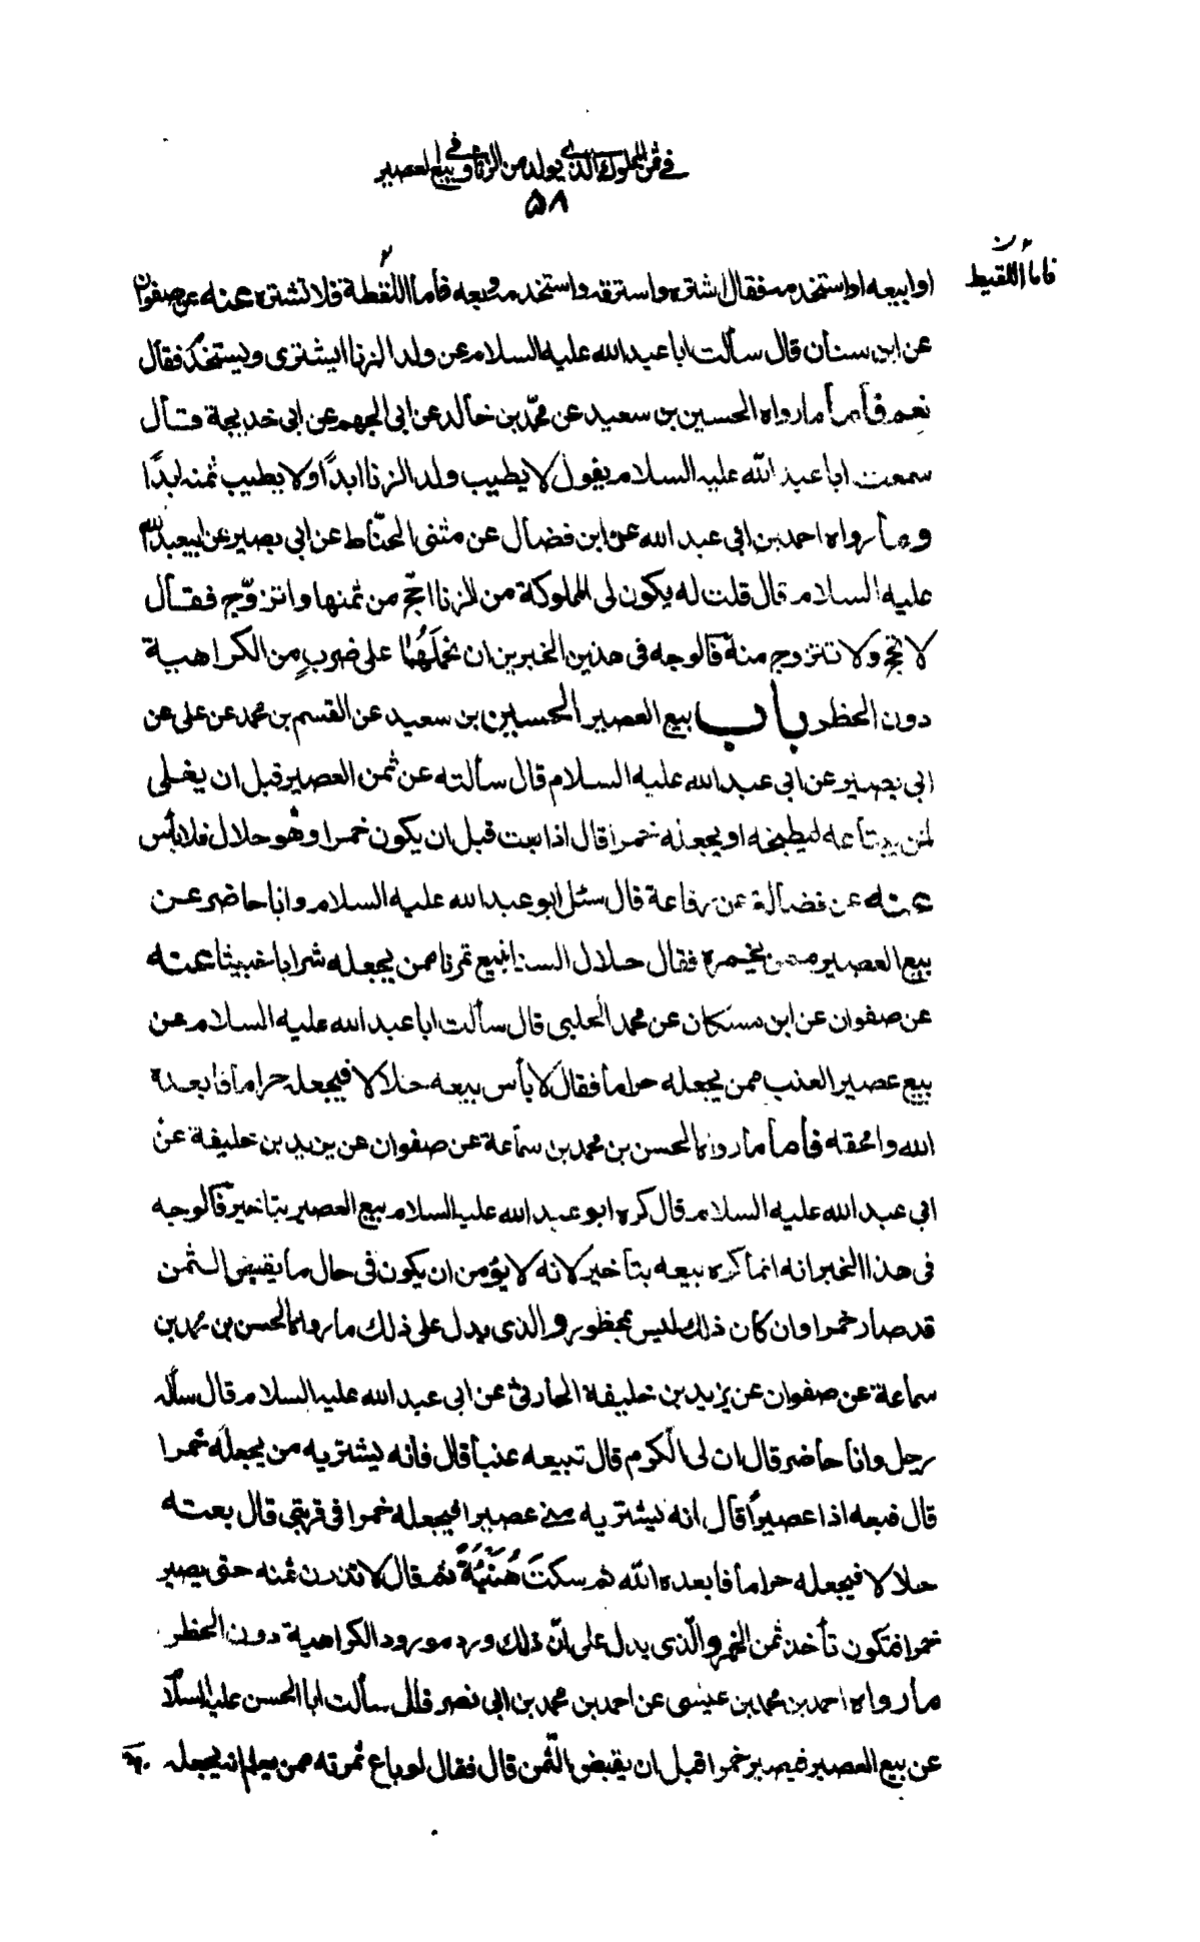 في ثمن المملوك الذي يولد من الزنا وفي بيع العصير
٥٨
فاما اللقيط
او ابيعه او استخدمه فقال اشتره واسترقه واستخدمه وبعه فأما اللقطة فلا تشتره عنه عن صفوان
عن ابن سنان قال سألت ابا عبد الله عليه السلام عن ولد الزنا ايشترى ويستخدم فقال
نعم فأما ما رواه الحسين بن سعيد عن محمّد بن خالد عن ابى الجهم عن ابى خديجة قال
سمعت ابا عبد الله عليه السلام يقول لا يطيب ولد الزنا ابدًا ولا يطيب ثمنه ابدًا
وما رواه احمد بن ابي عبد الله عن ابن فضال عن مثنى الحنّاط عن ابي بصير عن ابيعبد الله
عليه السلام قال قلت له يكون لى المملوكة من الزنا احجّ من ثمنها واتزوّج فقال
لا تحج ولا تتزوج منه فالوجه في هذين الخبرين ان نحملَهُما على ضربٍ من الكراهية
دون الحظر باب بيع العصير الحسين بن سعيد عن القسم بن محمد عن على عن
ابي بصير عن ابي عبد الله عليه السلام قال سألته عن ثمن العصير قبل ان يغلى
لمن يبتاعه ليطبخه او يجعله خمرا قال اذا بعت قبل ان يكون خمرا وهو حلال فلا بأس
عنه عن فضالة عن رفاعة قال سئل ابو عبد الله عليه السلام وانا حاضر عن
بيع العصير ممن يخمره فقال حلال السنا نبيع تمرنا ممن يجعله شرابا خبيثا عنه
عن صفوان عن ابن مسكان عن محمد الحلبي قال سألت ابا عبد الله عليه السلام عن
بيع عصير العنب ممن يجعله حراما فقال لا بأس ببيعه حلالا فيجعله حراما فابعده
الله واسحقه فأما ما رواه الحسن بن محمد بن سماعة عن صفوان عن يزيد بن خليفة عن
ابي عبد الله عليه السلام قال كره ابو عبد الله عليه السلام بيع العصير بتاخير فالوجه
في هذا الخبر انه انما كره بيعه بتأخير لانه لا يؤمن ان يكون في حال ما يقبض الثمن
قد صار خمرا وان كان ذلك ليس بمحظور والذى يدل على ذلك ما رواه الحسن بن محمد بن
سماعة عن صفوان عن يزيد بن خليفة الحارثى عن ابي عبد الله عليه السلام قال سأله
رجل وانا حاضر قال ان لى الكرم قال تبيعه عنبا قال فانه يشتريه من يجعله خمرا
قال فبعه اذا عصيراً قال انه يشتريه مني عصيرا فيجعله خمرا في قربتي قال بعته
حلالا فيجعله حراما فابعده الله ثم سكت هُنَيْهَةً ثم قال لا تذرن ثمنه حتى يصير
خمرا فتكون تأخذ ثمن الخمر والّذى يدل على انّ ذلك ورد مورد الكراهية دون الحظر
ما رواه احمد بن محمد بن عيسى عن احمد بن محمد بن ابي نصر قال سألت ابا الحسن عليه السلام
عن بيع العصير فيصير خمرا قبل ان يقبض الثّمن قال فقال لو باع ثمرته ممن يعلم انه يجعله